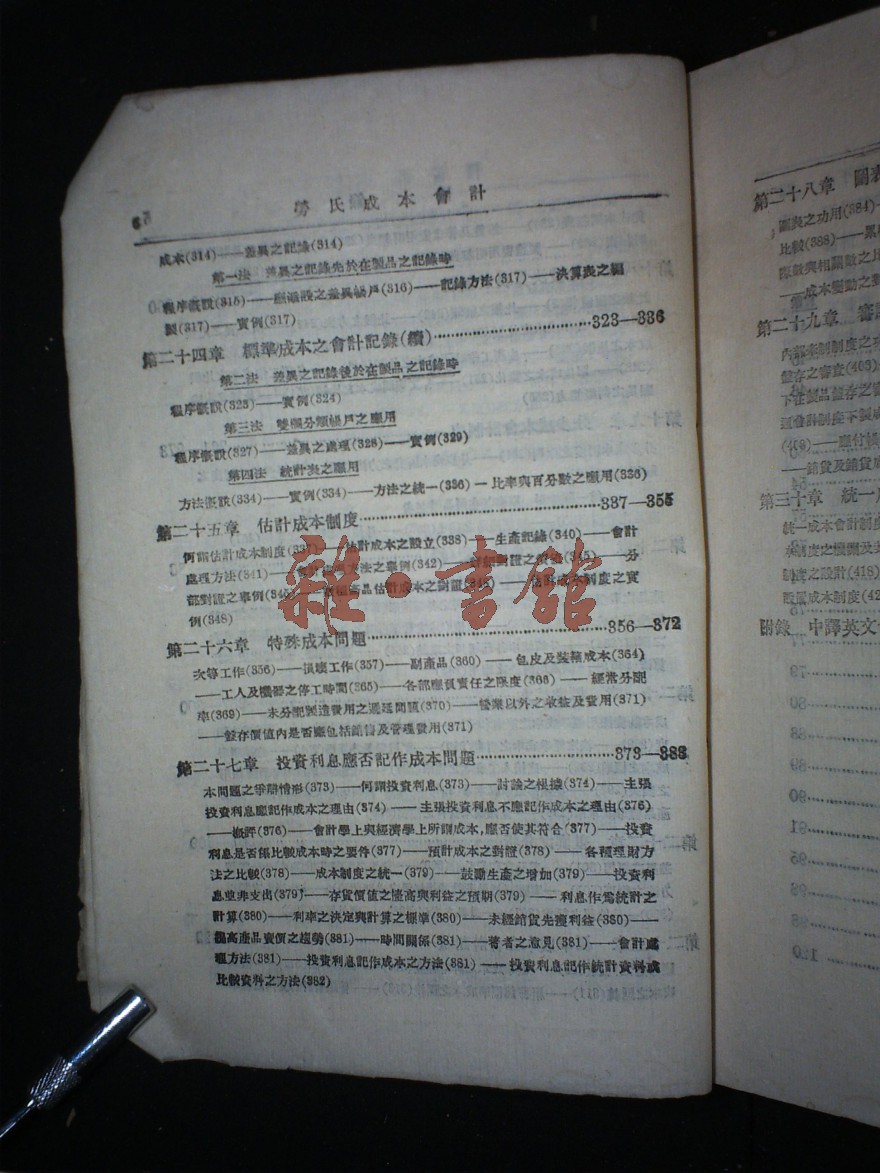 勞氏成本會計
成本(314)——差異之記錄(314)
第一法 差異之記錄先於在製品之記錄時
程序概說(315)——應設之差異帳戶(316)——記錄方法(317)——決算表之編
製(317)——實例(317)
第二十四章 標準成本之會計記錄(續)……323—336
第二法 差異之記錄後於在製品之記錄時
程序概說(323)——實例(324)
第三法 雙欄分類帳戶之應用
程序概說(327)——差異之處理(328)——實例(329)
第四法 統計表之應用
方法概說(334)——實例(334)——方法之統一(336)—比率與百分數之應用(336)
第二十五章 估計成本制度……337—355
何謂估計成本制度(337)——估計成本之設立(338)——生產記錄(340)——會計
處理方法(341)——會計處理方法之舉例(342)——分部對證之(345)——分
部對證之舉例(345)——產品估計成本之對證(348)——估計成本制度之實
例(348)
第二十六章 特殊成本問題……356—372
次等工作(356)——損壞工作(357)——副產品(360)——包皮及裝箱成本(364)
——工人及機器之停工時間(365)——各部應負責任之限度(366)——經常分配
率(369)——未分配製造費用之遞延問題(370)——營業以外之收益及費用(371)
——盤存價值內是否應包括銷售及管理費用(371)
第二十七章 投資利息應否記作成本問題……373—383
本問題之爭辯情形(373)——何謂投資利息(373)——討論之根據(374)——主張
投資利息應記作成本之理由(374)——主張投資利息不應記作成本之理由(376)
——概評(376)——會計學上與經濟學上所謂成本,應否使其符合(377)——投資
利息是否係比較成本時之要件(377)——預計成本之對證(378)——各種理財方
法之比較(378)——成本制度之統一(379)——鼓勵生產之增加(379)——投資利
息並非支出(379)——存貨價值之擡高與利益之預期(379)——利息作爲統計之
計算(380)——利率之決定與計算之標準(380)——未經銷貨先獲利益(380)——
提高產品賣價之趨勢(381)——時間關係(381)——著者之意見(381)——會計處
理方法(381)——投資利息記作成本之方法(381)——投資利息記作統計資料或
比較資料之方法(382)
雜·書館
第二十八章 圖表
圖表之功用(384)
比較(388)——累
際數與相關數之比
——成本變動之對
第二十九章 審
內部牽制制度之
盤存之審查(403)
下在製品盤存之審
運會計制度不製成
——應付帳
——銷貨及銷貨成
第三十章 統一
統一成本會計制度
本制度之機關及
制度之設計(418)
成本制度(42
附錄 中譯英文